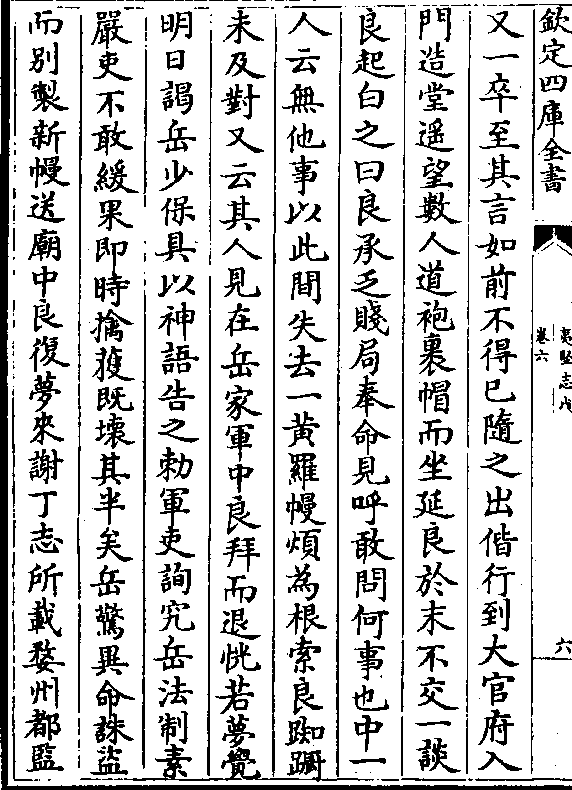 欽定四庫全書
夷堅志戊
卷六
六
又一卒至其言如前不得已隨之出偕行到大官府入
門造堂遥望數人道袍裹帽而坐延良於末不交一談
良起白之曰良承乏賤局奉命見呼敢問何事也中一
人云無他事以此間失去一黄羅幔煩為根索良踟蹰
未及對又云其人見在岳家軍中良拜而退恍若夢覺
明日謁岳少保具以神語告之勅軍吏詢究岳法制素
嚴吏不敢緩果即時擒獲既壊其半矣岳驚異命誅盜
而别製新幔送廟中良復夢來謝丁志所載婺州都監